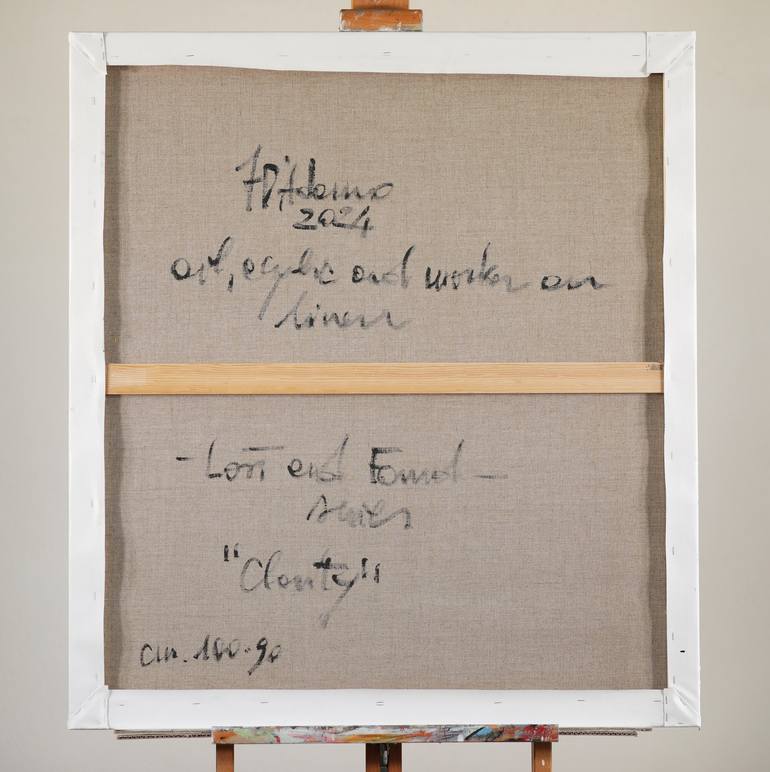 FD'Adamo
2024
oil, acrylic and marker on
linen
- Lost and Found -
series
"Clarity"
cm. 100.90